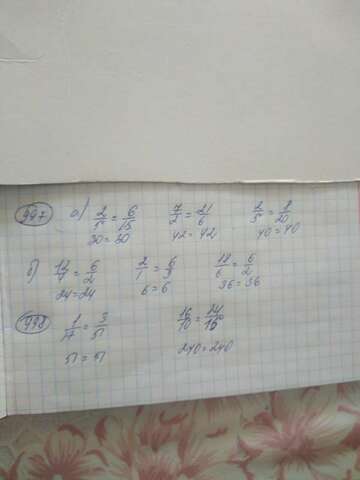 997 а) 2/5 = 6/15 7/2 = 21/6 2/5 = 8/20
30 = 30 42 = 42 40 = 40
б) 12/4 = 6/2 2/1 = 6/3 18/6 = 6/2
24 = 24 6 = 6 36 = 36
998 1/17 = 3/51 16/10 =
51 = 51 240 = 240